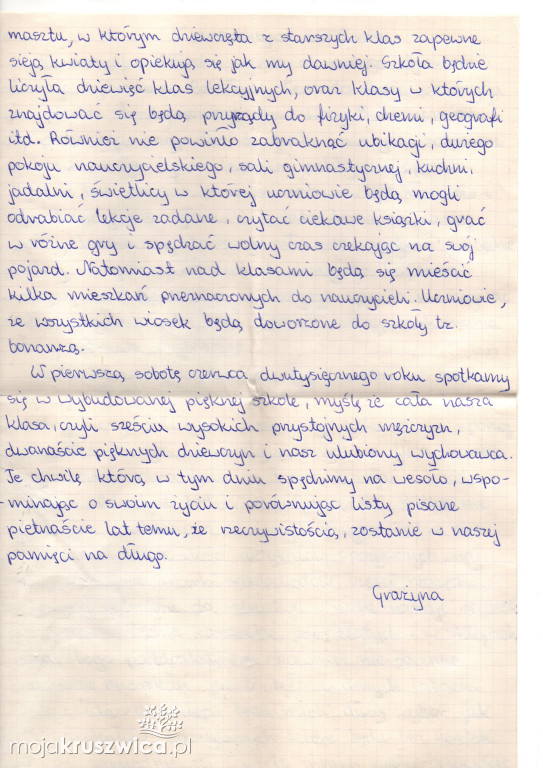 masztu, w którym dziewczęta z starszych klas zapewne
sieją kwiaty i opiekują się jak my dawniej. Szkoła będzie
liczyła dziewięć klas lekcyjnych, oraz klasy w których
znajdować się będą przyrządy do fizyki, chemi, geografi
itd. Również nie powinło zabraknąć ubikacji, dużego
pokoju nauczycielskiego, sali gimnastycznej, kuchni,
jadalni, świetlicy w której uczniowie będą mogli
odrabiać lekcje zadane, czytać ciekawe książki, grać
w różne gry i spędzać wolny czas czekając na swój
pojazd. Natomiast nad klasami będą się mieścić
kilka mieszkań przeznaczonych do nauczycieli. Uczniowie,
ze wszystkich wiosek będą dowożone do szkoły tz.
bonanzą.
W pierwszą sobotę czerwca, dwutysięcznego roku spotkamy
się w wybudowanej pięknej szkole, myślę że cała nasza
klasa, czyli sześciu wysokich przystojnych mężczyzn,
dwanaście pięknych dziewczyn i nasz ulubiony wychowawca.
Te chwilę którą w tym dniu spędzimy na wesoło, wspo-
-minając o swoim życiu i porównując listy pisane
piętnaście lat temu, że rzeczywistością, zostanie w naszej
pamięci na długo.
Grażyna
mojakruszwica.pl